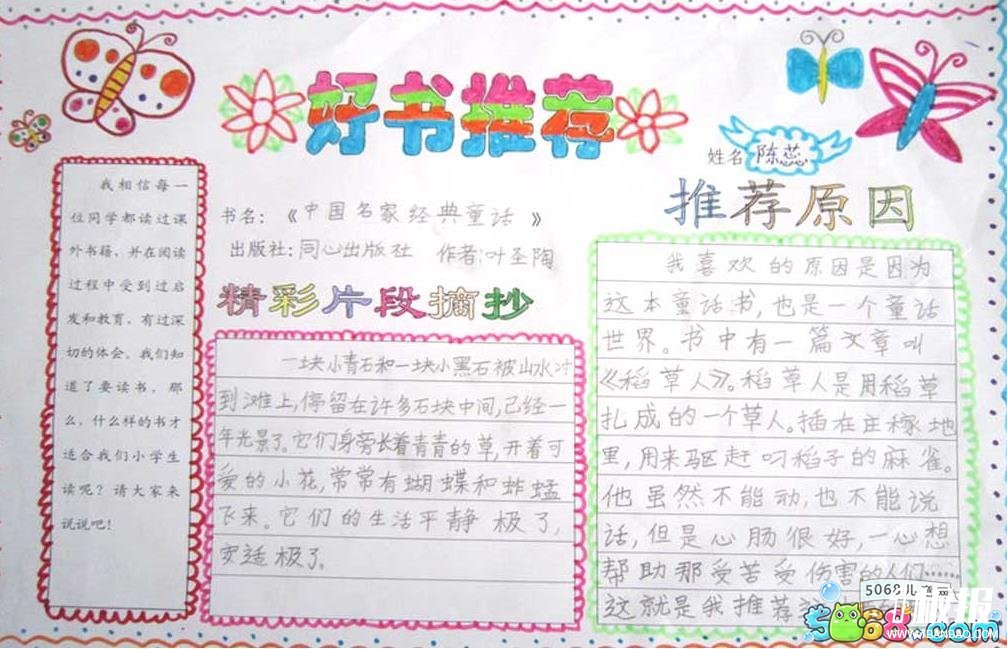 好书推荐
姓名 陈蕊
我相信每一
位同学都读过课
外书籍，并在阅读
过程中受到过启
发和教育，有过深
切的体会。我们知
道了要读书，那
么，什么样的书才
适合我们小学生
读呢？请大家来
说说吧！
书名：《中国名家经典童话》
出版社：同心出版社 作者：叶圣陶
精彩片段摘抄
一块小青石和一块小黑石被山水冲
到滩上，停留在许多石块中间，已经一
年光景了。它们身旁长着青青的草，开着可
爱的小花，常常有蝴蝶和蚱蜢
飞来。它们的生活平静极了，
安适极了。
推荐原因
我喜欢的原因是因为
这本童话书，也是一个童话
世界。书中有一篇文章叫
《稻草人》。稻草人是用稻草
扎成的一个草人。插在庄稼地
里，用来驱赶叼稻子的麻雀。
他虽然不能动，也不能说
话，但是心肠很好，一心想
帮助那受苦受伤害的人们……
这就是我推荐
5068儿童网
5068.com
板报